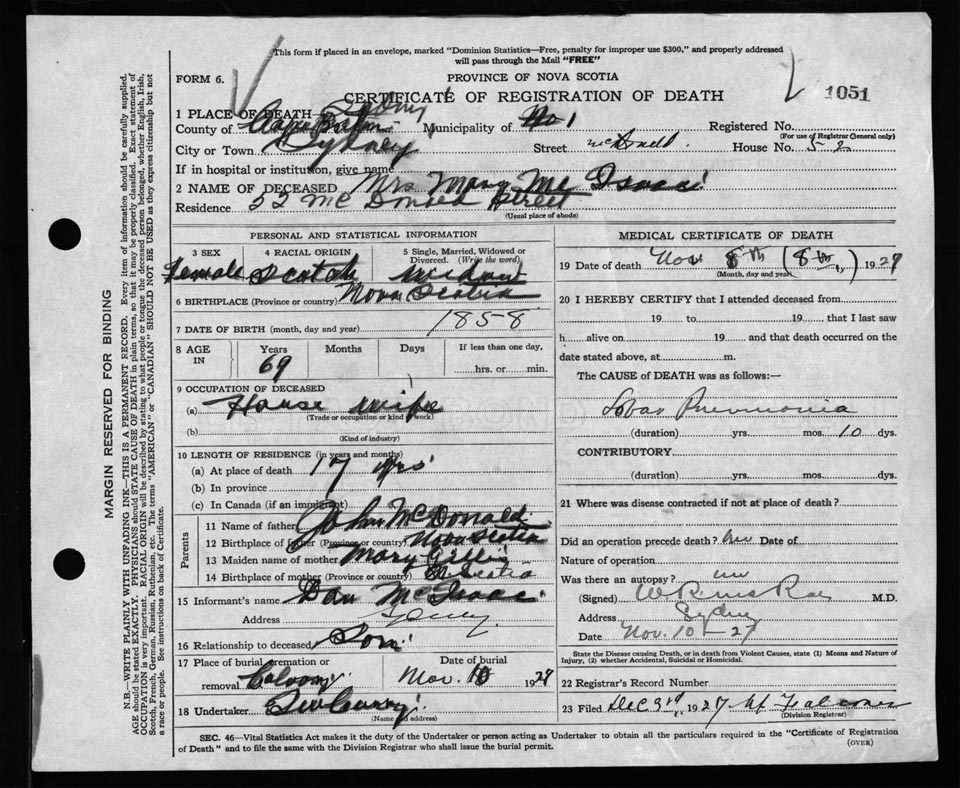 This form if placed in an envelope, marked "Dominion Statistics—Free, penalty for improper use $300," and properly addressed
will pass through the Mail "FREE"
FORM 6.
PROVINCE OF NOVA SCOTIA
CERTIFICATE OF REGISTRATION OF DEATH
1051
1 PLACE OF DEATH Sydney
County of Cape Breton Municipality of No 1 Registered No.
(For use of Registrar General only)
City or Town Sydney Street House No. 52
If in hospital or institution, give name
2 NAME OF DECEASED Mrs. Mary Mc Isaac
Residence 52 Mc Donald Street
(Usual place of abode)
PERSONAL AND STATISTICAL INFORMATION
3 SEX
Female
4 RACIAL ORIGIN
Scotch
5 Single, Married, Widowed or
Divorced. (Write the word)
Widow
6 BIRTHPLACE (Province or country) Nova Scotia
7 DATE OF BIRTH (month, day and year) 1858
8 AGE
IN
Years
69
Months
Days
If less than one day,
hrs. or min.
9 OCCUPATION OF DECEASED
(a) House wife
(Trade or occupation or kind of work)
(b)
(Kind of industry)
10 LENGTH OF RESIDENCE (in years and months)
(a) At place of death 17 yrs
(b) In province
(c) In Canada (if an immigrant)
Parents
11 Name of father John McDonald
12 Birthplace of father (Province or country) Nova Scotia
13 Maiden name of mother Mary Gillis
14 Birthplace of mother (Province or country) N Scotia
15 Informant's name Dan McIsaac
Address Sydney
16 Relationship to deceased Son
17 Place of burial cremation or
removal
Date of burial
Nov. 10 1927
18 Undertaker
(Name and address)
MEDICAL CERTIFICATE OF DEATH
19 Date of death Nov 8th (8th,) 1927
(Month, day and year)
20 I HEREBY CERTIFY that I attended deceased from
19 to 19 that I last saw
h alive on 19 and that death occurred on the
date stated above, at m.
The CAUSE of DEATH was as follows:—
Lobar Pneumonia
(duration) yrs. mos. 10 dys.
CONTRIBUTORY
(duration) yrs. mos. dys.
21 Where was disease contracted if not at place of death?
Did an operation precede death? no Date of
Nature of operation
Was there an autopsy? no
(Signed) M.D.
Address Sydney
Date Nov. 10—27
State the Disease causing Death, or in death from Violent Causes, state (1) Means and Nature of
Injury, (2) whether Accidental, Suicidal or Homicidal.
22 Registrar's Record Number
23 Filed Dec 3rd, 1927
(Division Registrar)
SEC. 46—Vital Statistics Act makes it the duty of the Undertaker or person acting as Undertaker to obtain all the particulars required in the "Certificate of Registration
of Death" and to file the same with the Division Registrar who shall issue the burial permit.
(OVER)
MARGIN RESERVED FOR BINDING
N.B.—WRITE PLAINLY WITH UNFADING INK—THIS IS A PERMANENT RECORD. Every item of information should be carefully supplied.
AGE should be stated EXACTLY. PHYSICIANS should STATE CAUSE OF DEATH in plain terms, so that it may be properly classified. Exact statement of
OCCUPATION is very important. RACIAL ORIGIN will be described by stating to what people or tongue the deceased person belonged, whether English, Irish,
Scotch, French, German, Russian, Ruthenian, etc. The terms "AMERICAN" or "CANADIAN" SHOULD NOT BE USED as they express citizenship but not
a race or people. See instructions on back of Certificate.